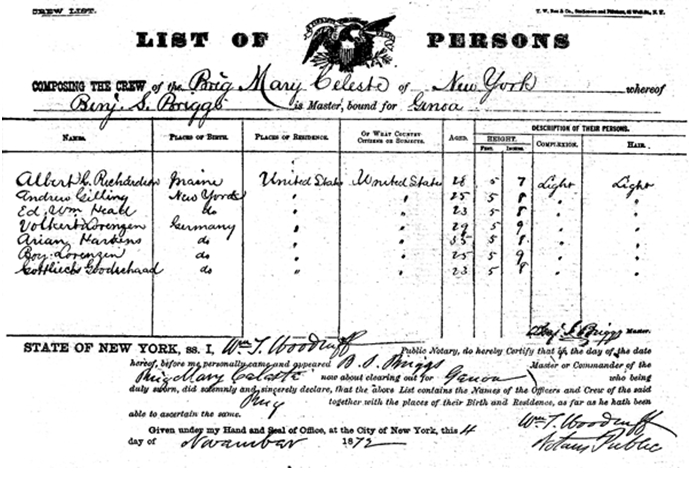 CREW LIST.
LIST OF PERSONS
COMPOSING THE CREW of the Brig Mary Celeste of New York whereof
Benj S. Briggs is Master, bound for Genoa
DESCRIPTION OF THEIR PERSONS.
NAMES. PLACES OF BIRTH. PLACES OF RESIDENCE. OF WHAT COUNTRY CITIZENS OR SUBJECTS. AGED. HEIGHT. Feet. Inches. COMPLEXION. HAIR.
Albert C. Richardson Maine United States United States 28 5 7 Light Light
Andrew Gilling New York " " 25 5 8 " "
Ed. Wm Head do " " 23 5 8 " "
Volkert Lorenzen Germany " " 29 5 9 " "
Arian Harbens do " " 35 5 8 " "
Boy Lorenzen do " " 25 5 9 " "
Gottlieb Goodschaad do " " 23 5 8 " "
Benj S. Briggs Master.
STATE OF NEW YORK, SS. I, Wm T. Woodruff Public Notary, do hereby Certify that on the day of the date
hereof, before me personally came and appeared B. S. Briggs Master or Commander of the
Brig Mary Celeste now about clearing out for Genoa who being
duly sworn, did solemnly and sincerely declare, that the above List contains the Names of the Officers and Crew of the said
Brig together with the places of their Birth and Residence, as far as he hath been
able to ascertain the same.
Given under my Hand and Seal of Office, at the City of New York, this 4
day of November 1872
Wm T. Woodruff
Notary Public